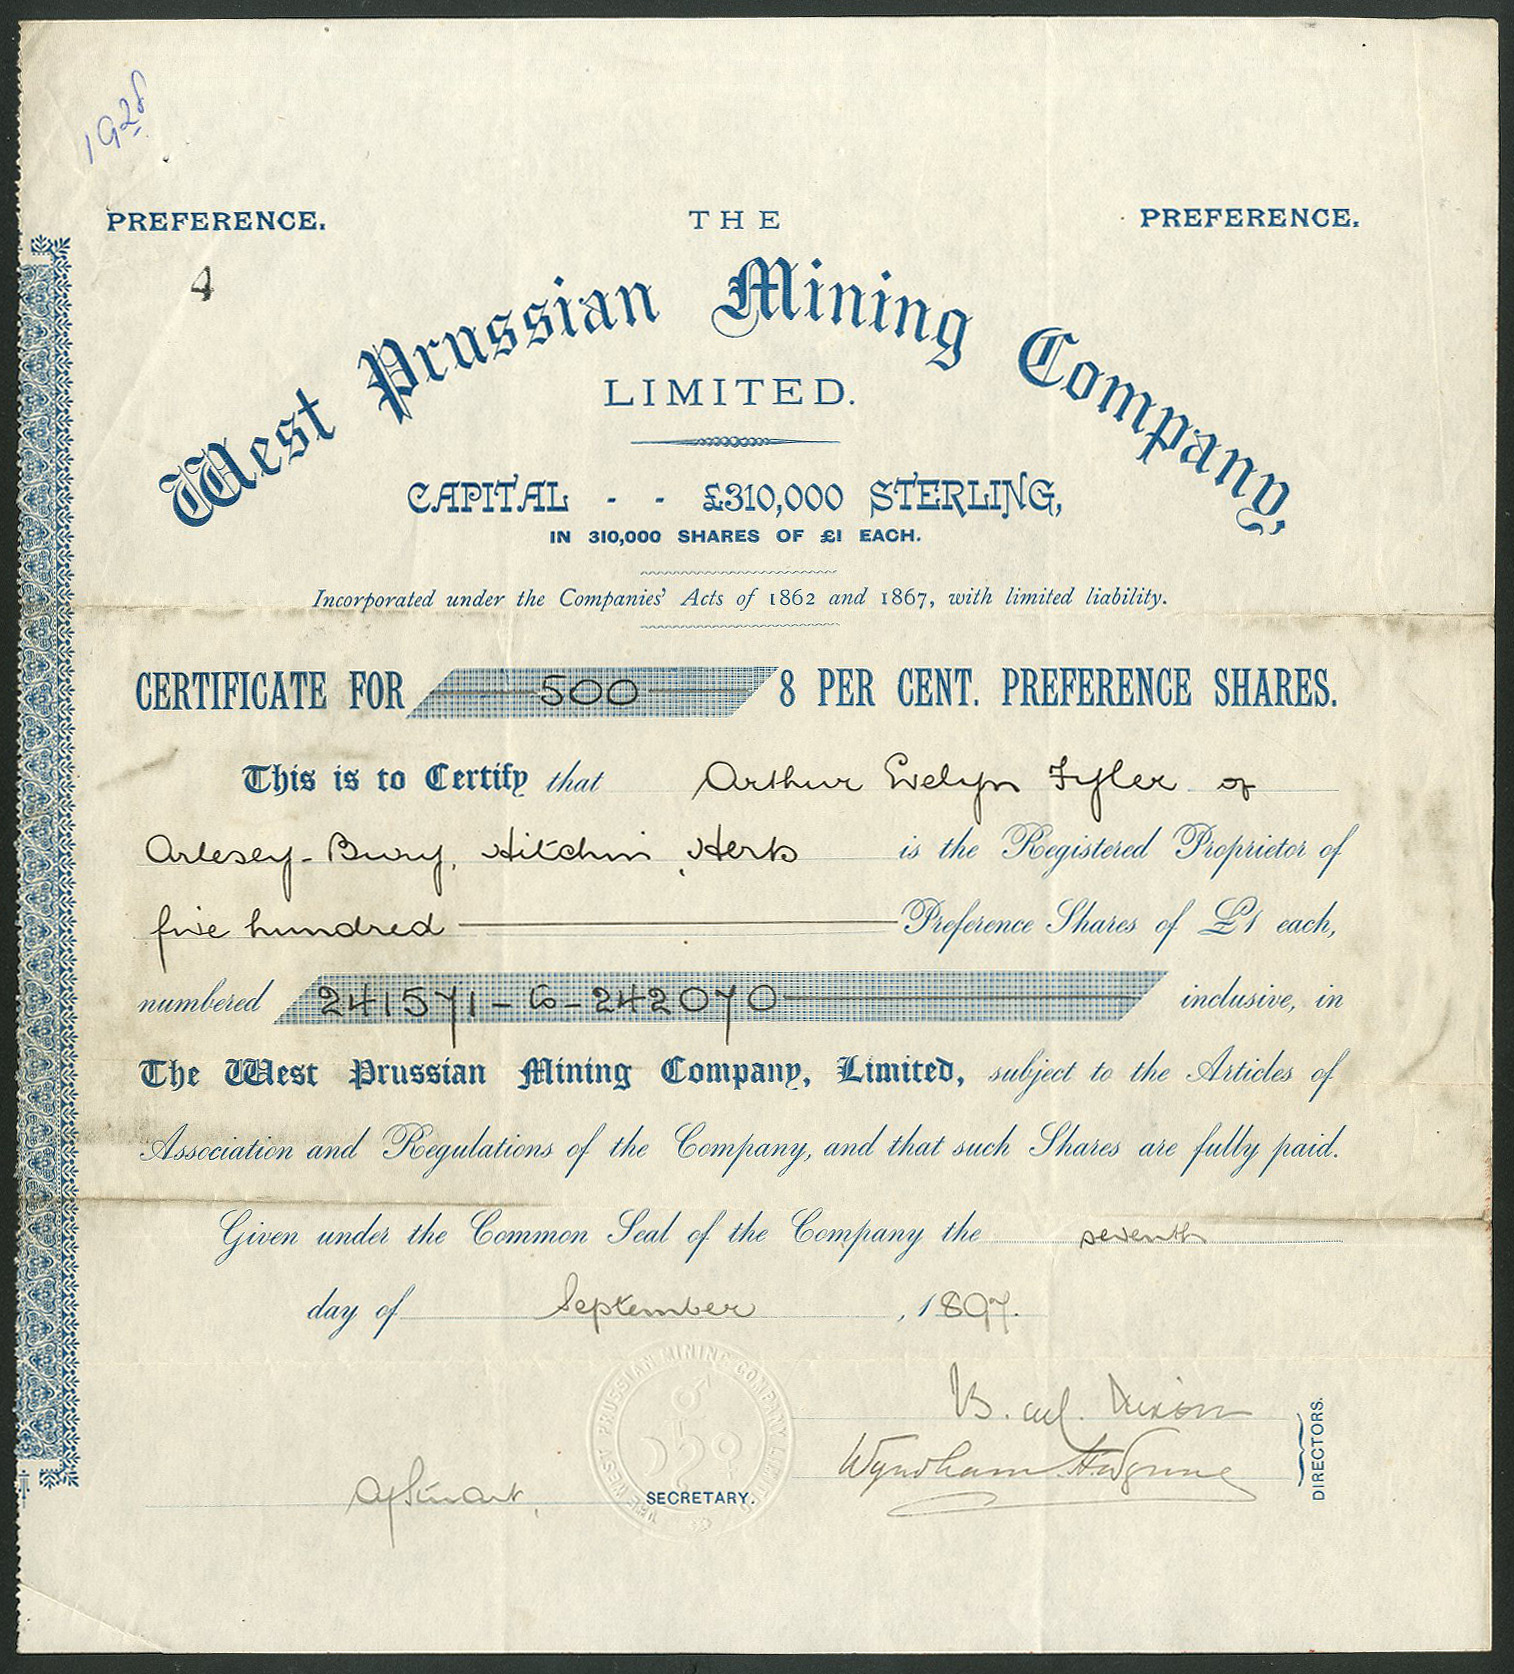 1928
PREFERENCE. THE PREFERENCE.
4
West Prussian Mining Company,
LIMITED.
CAPITAL - - £310,000 STERLING,
IN 310,000 SHARES OF £1 EACH.
Incorporated under the Companies' Acts of 1862 and 1867, with limited liability.
CERTIFICATE FOR 500 8 PER CENT. PREFERENCE SHARES.
This is to Certify that Arthur Evelyn Fyler of
Arlesey-Bury, Hitchin, Herts is the Registered Proprietor of
five hundred Preference Shares of £1 each,
numbered 241571 - to - 242070 inclusive, in
The West Prussian Mining Company, Limited, subject to the Articles of
Association and Regulations of the Company, and that such Shares are fully paid.
Given under the Common Seal of the Company the seventh
day of September, 1897.
THE WEST PRUSSIAN MINING COMPANY LIMITED
Dixon
Wyndham
DIRECTORS.
Stuart
SECRETARY.